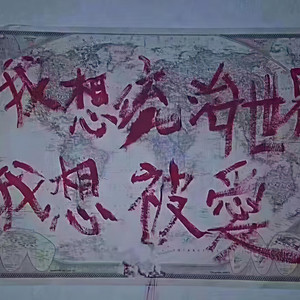 我想统治世界
我想被愛